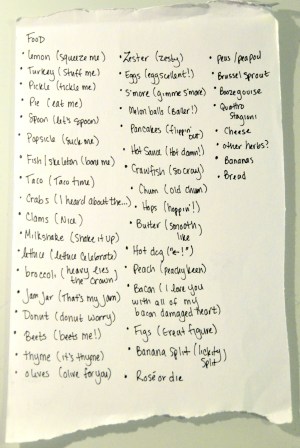 FOOD
• Lemon (squeeze me)
• Turkey (Stuff me)
• Pickle (tickle me)
• Pie (eat me)
• Spoon (let's spoon)
• Popsicle (suck me)
• Fish/skeleton (bone me)
• Taco (Taco time)
• Crabs (I heard about the...)
• Clams (Nice)
• Milkshake (Shake it up)
• lettuce (lettuce celebrate)
• broccoli (heavy lies the crown)
• Jam Jar (That's my jam)
• Donut (donut worry)
• Beets (beets me!)
• thyme (it's thyme)
• olives (olive for you)
• Zester (zesty)
• Eggs (eggscellent!)
• S'more (gimme s'more)
• Melon balla (Baller!)
• Pancakes (flippin' out)
• Hot Sauce (Hot damn!)
• Crawfish (so cray)
• Chum (old chum)
• Hops (hoppin'!)
• Butter (smooth like)
• Hot dog
• Peach (peachy keen)
• Bacon (I love you
with all of my
bacon damaged heart)
• Figs (Great figure)
• Banana Split (lickity split)
• Rosé or die
• peas/peapod
• Brussel Sprout
• Quattro
Stagioni
• Cheese
• other herbs?
• Bananas
• Bread